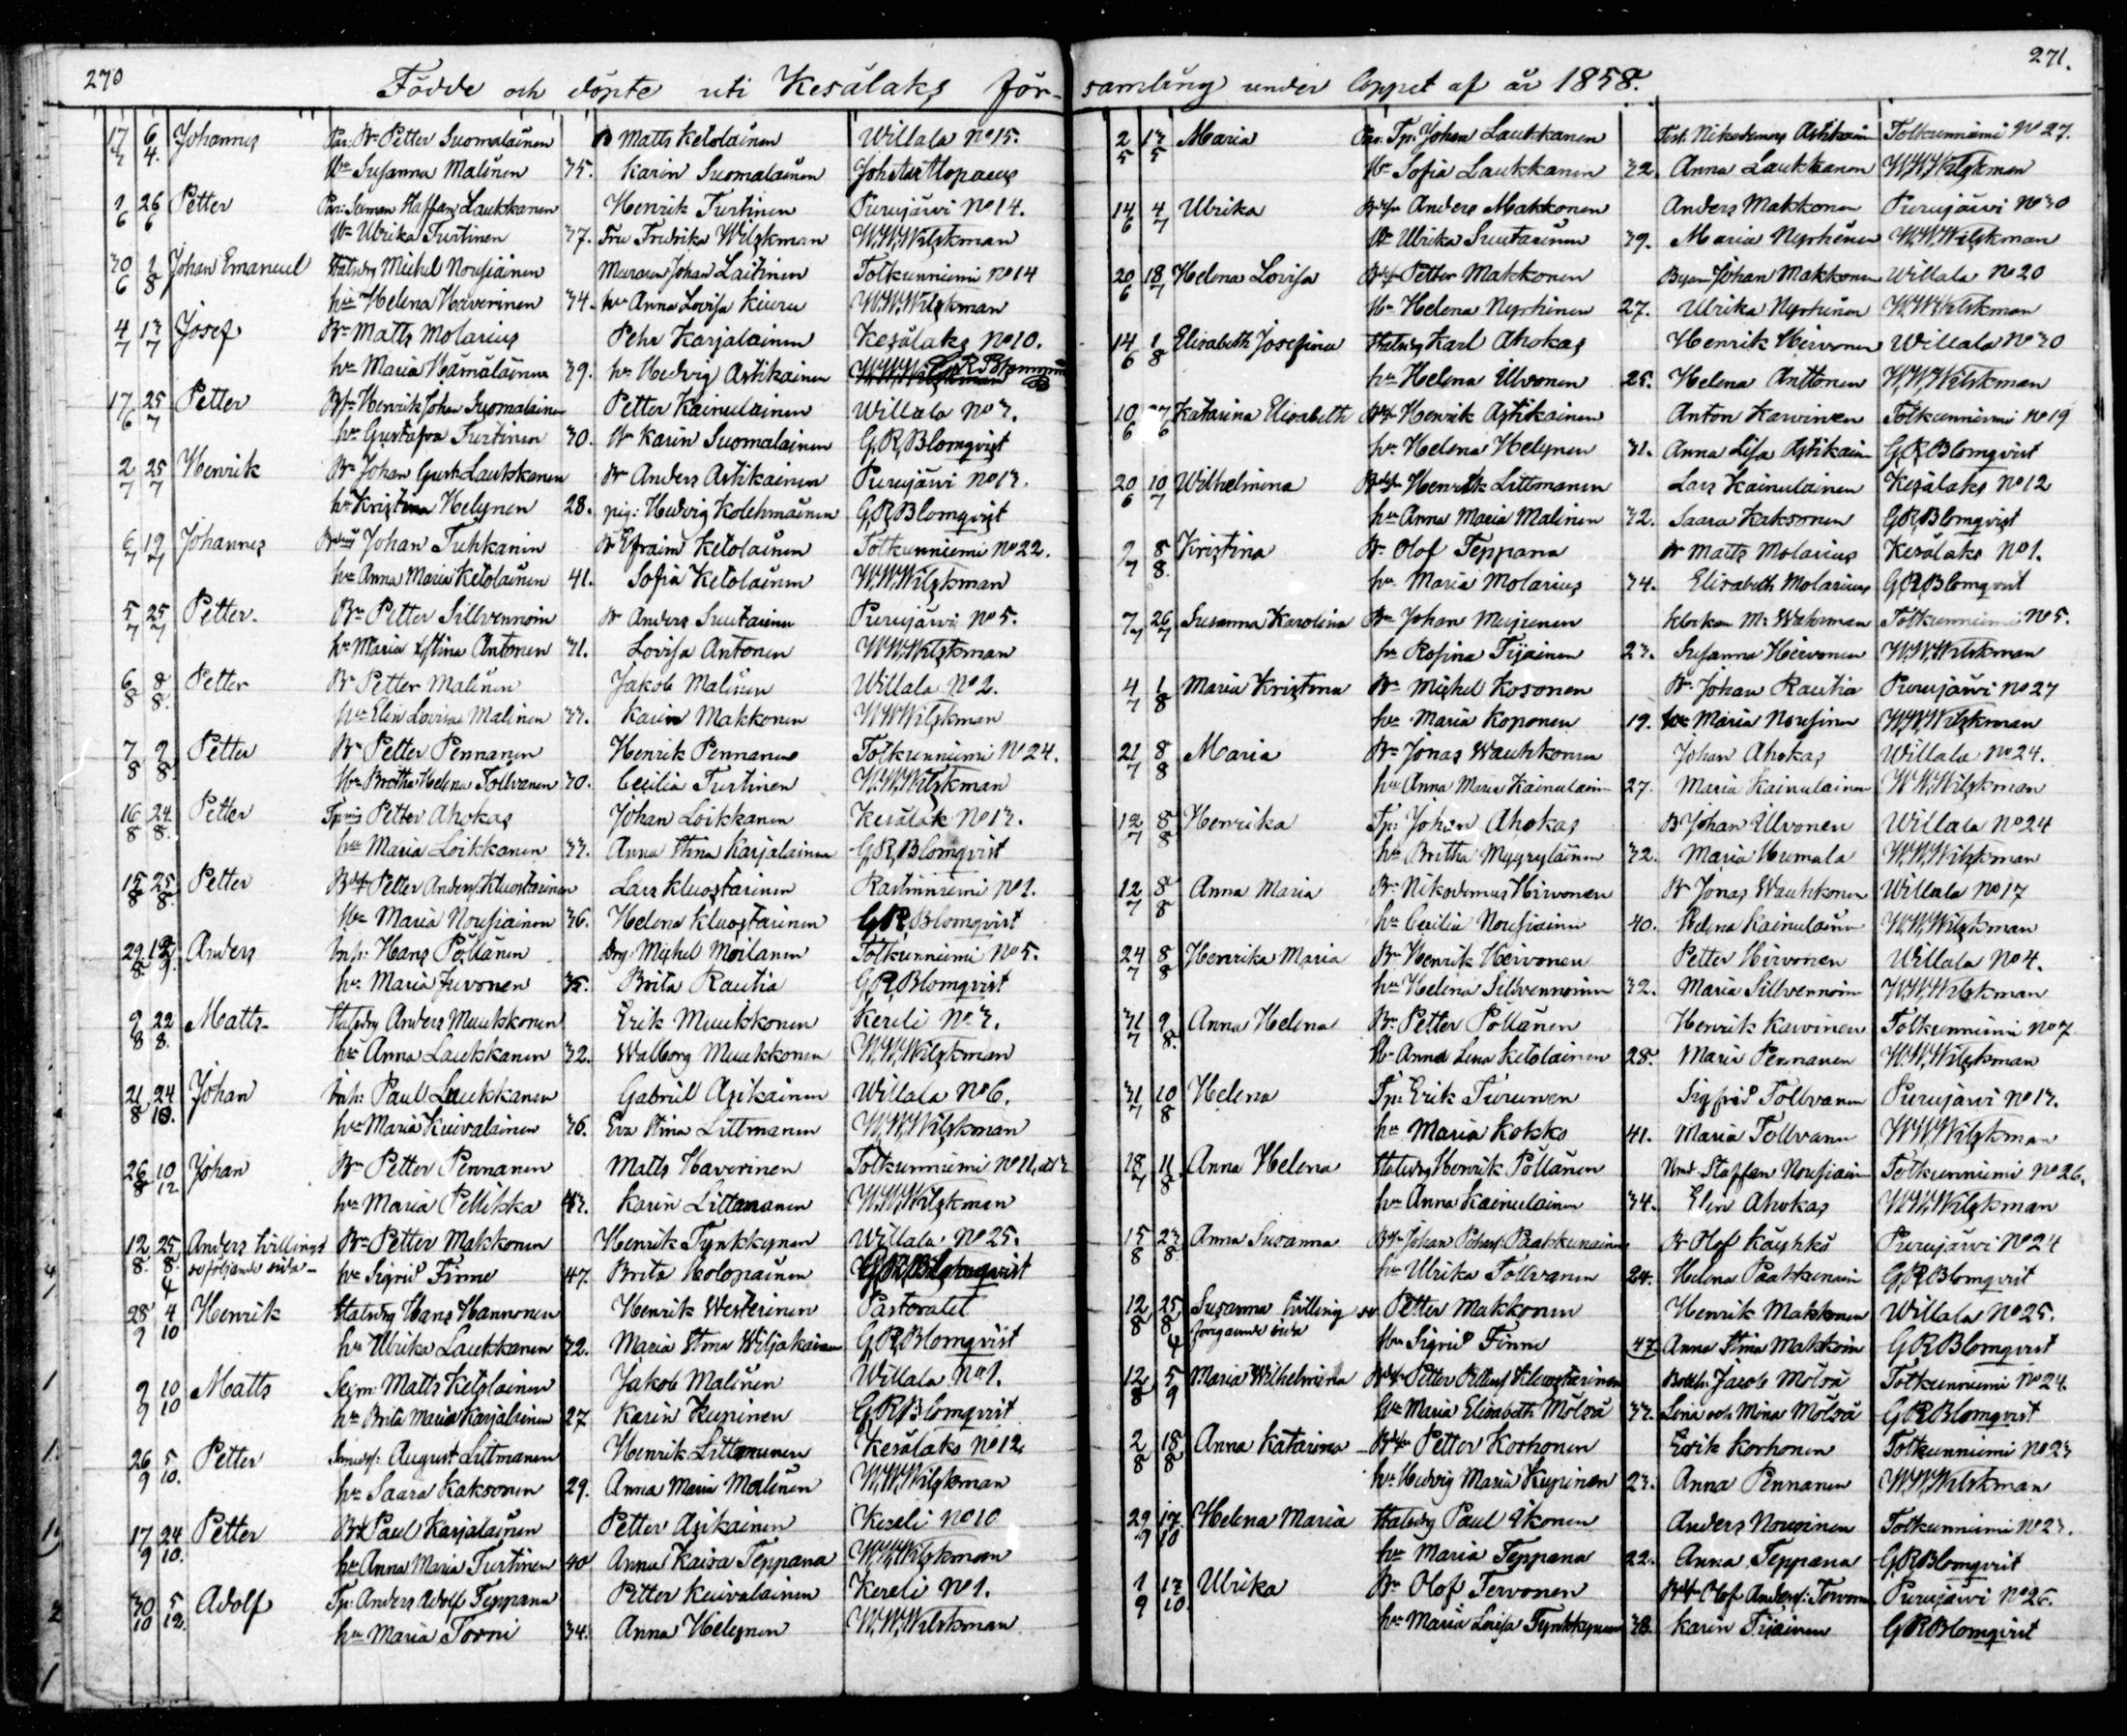 270
Födde och döpte uti Kesälaks För-
17/3 6/4. Johannes Par: Bn Petter Suomalainen B Matts Ketolainen Willala No 15.
Hu Susanna Malinen 35. Karin Suomalainen Joh
1/6 26/6 Petter Staffan Laukkanen Henrik Turtinen Purujärvi No 14.
Hu Ulrika Turtinen 37. Fru Fredrika Wilskman W.W.Wilskman
30/6 1/8 Johan Emanuel Statsdrg Michel Nousiainen Johan Laitinen Totkunniemi No 14
hu Helena Haverinen 34. hu Anna Lovisa Kiuru W.W.Wilskman
4/7 13/7 Josef Bn Matts Molarius Pehr Karjalainen Kesälaks No 10.
hu Maria Hämäläinen 39. hu Hedvig Astikainen
17/6 25/7 Petter Henrik Johan Suomalainen Petter Kainulainen Willala No 3.
hu Gustafva Turtinen 30. Karin Suomalainen G.R.Blomqvist
2/7 25/7 Henrik Bn Johan Gust. Laukkanen Bn Anders Astikainen Purujärvi No 13.
hu Kristina Helynen 28. pig: Hedvig Kolehmainen G.R.Blomqvist
6/7 19/7 Johannes Johan Tuhkanen Bn Efraim Ketolainen Totkunniemi No 22.
hu Anna Maria Ketolainen 41. Sofia Ketolainen W.W.Wilskman
5/7 25/7 Petter. Bn Petter Sillvennoin Bn Anders Suutarinen Purujärvi No 5.
hu Maria Stina Antonen 31. Lovisa Antonen W.W.Wilskman
6/8 8/8. Petter Bn Petter Malinen Jakob Malinen Willala No 2.
hu Elin Lovisa Malinen 33. Karin Makkonen W.W.Wilskman
7/8 9/8 Petter Bn Petter Pennanen Henrik Pennanen Totkunniemi No 24.
Hu Brita Helena Tollvanen 30. Cecilia Turtinen W.W.Wilskman
16/8 24/8. Petter Petter Ahokas Johan Loikkanen Kesälak No 13.
hu Maria Loikkanen 33. Anna Stina Karjalainen G.R.Blomqvist
15/8 25/8. Petter Petter Anders. Kluostarinen Lars Kluostarinen Rastinniemi No 1.
Hu Maria Nousiainen 36. Helena Kluostarinen G.R.Blomqvist
29/8 12/9. Anders Inh: Hans Pöllänen drg Michel Moilanen Totkunniemi No 5.
hu Maria Juvonen 35. Brita Rautia G.R.Blomqvist
9/8 22/8. Matts Statsdrg Anders Muukkonen Erik Muukkonen Kereli No 3.
hu Anna Laukkanen 32. Walborg Muukkonen W.W.Wilskman
21/8 24/10. Johan Inh: Paul Laukkanen Gabriel Asikainen Willala No 6.
hu Maria Kuivalainen 36. Eva Stina Littmanen W.W.Wilskman
26/8 10/12 Johan Bn Petter Pennanen Matts Haverinen Totkunniemi No 11
hu Maria Pellikka 43. Karin Littmanen W.W.Wilskman
12/8. 25/8. Anders tvilling Bn Petter Makkonen Henrik Tynkkynen Willala No 25.
se följande sida hu Sigrid Finne 47. Brita Holopainen G.R.Blomqvist
28/9 4/10 Henrik Statsdrg Hans Hannonen Henrik Westerinen Pastoratet
hu Ulrika Laukkanen 32. Maria Stina Wiljakainen G.R.Blomqvist
9/9 10/10 Matts Matts Ketolainen Jakob Malinen Willala No 1.
hu Brita Maria Karjalainen 27 Karin Kupinen G.R.Blomqvist
26/9 5/10. Petter August Littmanen Henrik Littmanen Kesälaks No 12
hu Saara Kaksonen 29. Anna Maria Malinen W.W.Wilskman
17/9 24/10. Petter Paul Karjalainen Petter Asikainen Kereli No 10
hu Anna Maria Turtinen 40 Anna Kaisa Teppana W.W.Wilskman
30/10 5/12. Adolf Tp: Anders Adolf Teppana Petter Kuivalainen Kereli No 1.
hu Maria Torni 34. Anna Helynen W.W.Wilskman
271.
samling under loppet af år 1858.
2/5 13/5 Maria Tp: Johan Laukkanen Nikodemus Astikain Totkunniemi No 27.
Hu Sofia Laukkanen 32. Anna Laukkanen W.W.Wilskman
14/6 4/7 Ulrika Anders Makkonen Anders Makkonen Purujärvi No 30
Hu Ulrika Suutarinen 39. Maria Nyrhinen W.W.Wilskman
20/6 18/7 Helena Lovisa Petter Makkonen Johan Makkonen Willala No 20
Hu Helena Nyrhinen 27. Ulrika Nyrhinen W.W.Wilskman
14/6 1/8 Elisabeth Josefina Statsdrg Karl Ahokas Henrik Hirvonen Willala No 30
hu Helena Ulvonen 25. Helena Anttonen W.W.Wilskman
10/6 27/6 Katarina Elisabeth Henrik Astikainen Anton Karvinen Totkunniemi No 19
hu Helena Helynen 31. Anna Lisa Astikain G.R.Blomqvist
20/6 10/7 Wilhelmina Henrik Littmanen Lars Kainulainen Kesälaks No 12
hu Anna Maria Malinen 32. Saara Kaksonen G.R.Blomqvist
9/7 8/8. Kristina Bn Olof Teppana Bn Matts Molarius Kesälaks No 1.
hu Maria Molarius 34. Elisabeth Molarius G.R.Blomqvist
7/7 26/7 Susanna Karolina Bn Johan Mujunen Klockan M: Wahrman Totkunniemi No 5.
hu Rosina Tijainen 23. Susanna Hirvonen W.W.Wilskman
4/7 1/8 Maria Kristina Bn Michel Kosonen Bn Johan Rautia Purujärvi No 27
hu Maria Koponen 19. Hu Maria Nousinen W.W.Wilskman
21/7 8/8 Maria Bn Jonas Wauhkonen Johan Ahokas Willala No 24.
hu Anna Maria Kainulain 27. Maria Kainulainen W.W.Wilskman
12/7 8/8 Henrika Tp: Johan Ahokas B Johan Ulvonen Willala No 24
hu Britha Myyryläinen 32. Maria Humala W.W.Wilskman
12/7 8/8 Anna Maria Bn Nikodemus Hirvonen Bn Jonas Wauhkonen Willala No 17
hu Cecilia Nousiainen 40. Helena Kainulainen W.W.Wilskman
24/7 8/8 Henrika Maria Bn Henrik Hirvonen Petter Hirvonen Willala No 4.
hu Helena Sillvennoinen 32. Maria Sillvennoin W.W.Wilskman
31/7 9/8. Anna Helena Bn Petter Pöllänen Henrik Karvinen Totkunniemi No 7
Hu Anna Lena Ketolainen 28. Maria Pennanen W.W.Wilskman
31/7 10/8 Helena Tp: Erik Turunen Sigfrid Tollvanen Purujärvi No 13.
hu Maria Kokko 41. Maria Tollvanen W.W.Wilskman
18/7 11/8. Anna Helena Statsdrg Henrik Pöllänen Staffan Nousiain Totkunniemi No 26.
hu Anna Kainulainen 34. Elin Ahokas W.W.Wilskman
15/8 23/8. Anna Susanna Johan Paakkunainen Bn Olof Käyhkö Purujärvi No 24
hu Ulrika Tollvanen 24. Helena Paakkunain G.R.Blomqvist
12/8 25/8 Susanna tvilling se Petter Makkonen Henrik Makkonen Willala No 25.
föregående sida Hu Sigrid Finne 47 Anna Stina Makkoin G.R.Blomqvist
12/8 5/9 Maria Wilhelmina Petter Kluostarinen Jacob Mölsä Totkunniemi No 24
Hu Maria Elisabeth Mölsä 33. Lovisa och Mina Mölsä G.R.Blomqvist
2/8 18/8 Anna Katarina Petter Korhonen Erik Korhonen Totkunniemi No 23
hu Hedvig Maria Kupinen 23. Anna Pennanen W.W.Wilskman
29/9 17/10 Helena Maria Statsdrg Paul Ikonen Anders Nousinen Totkunniemi No 23.
hu Maria Teppana 22. Anna Teppana G.R.Blomqvist
1/9 17/10 Ulrika Bn Olof Tervonen Olof Anders: Tervonen Purujärvi No 26.
hu Maria Lovisa Tynkkynen 38. Karin Tijainen G.R.Blomqvist